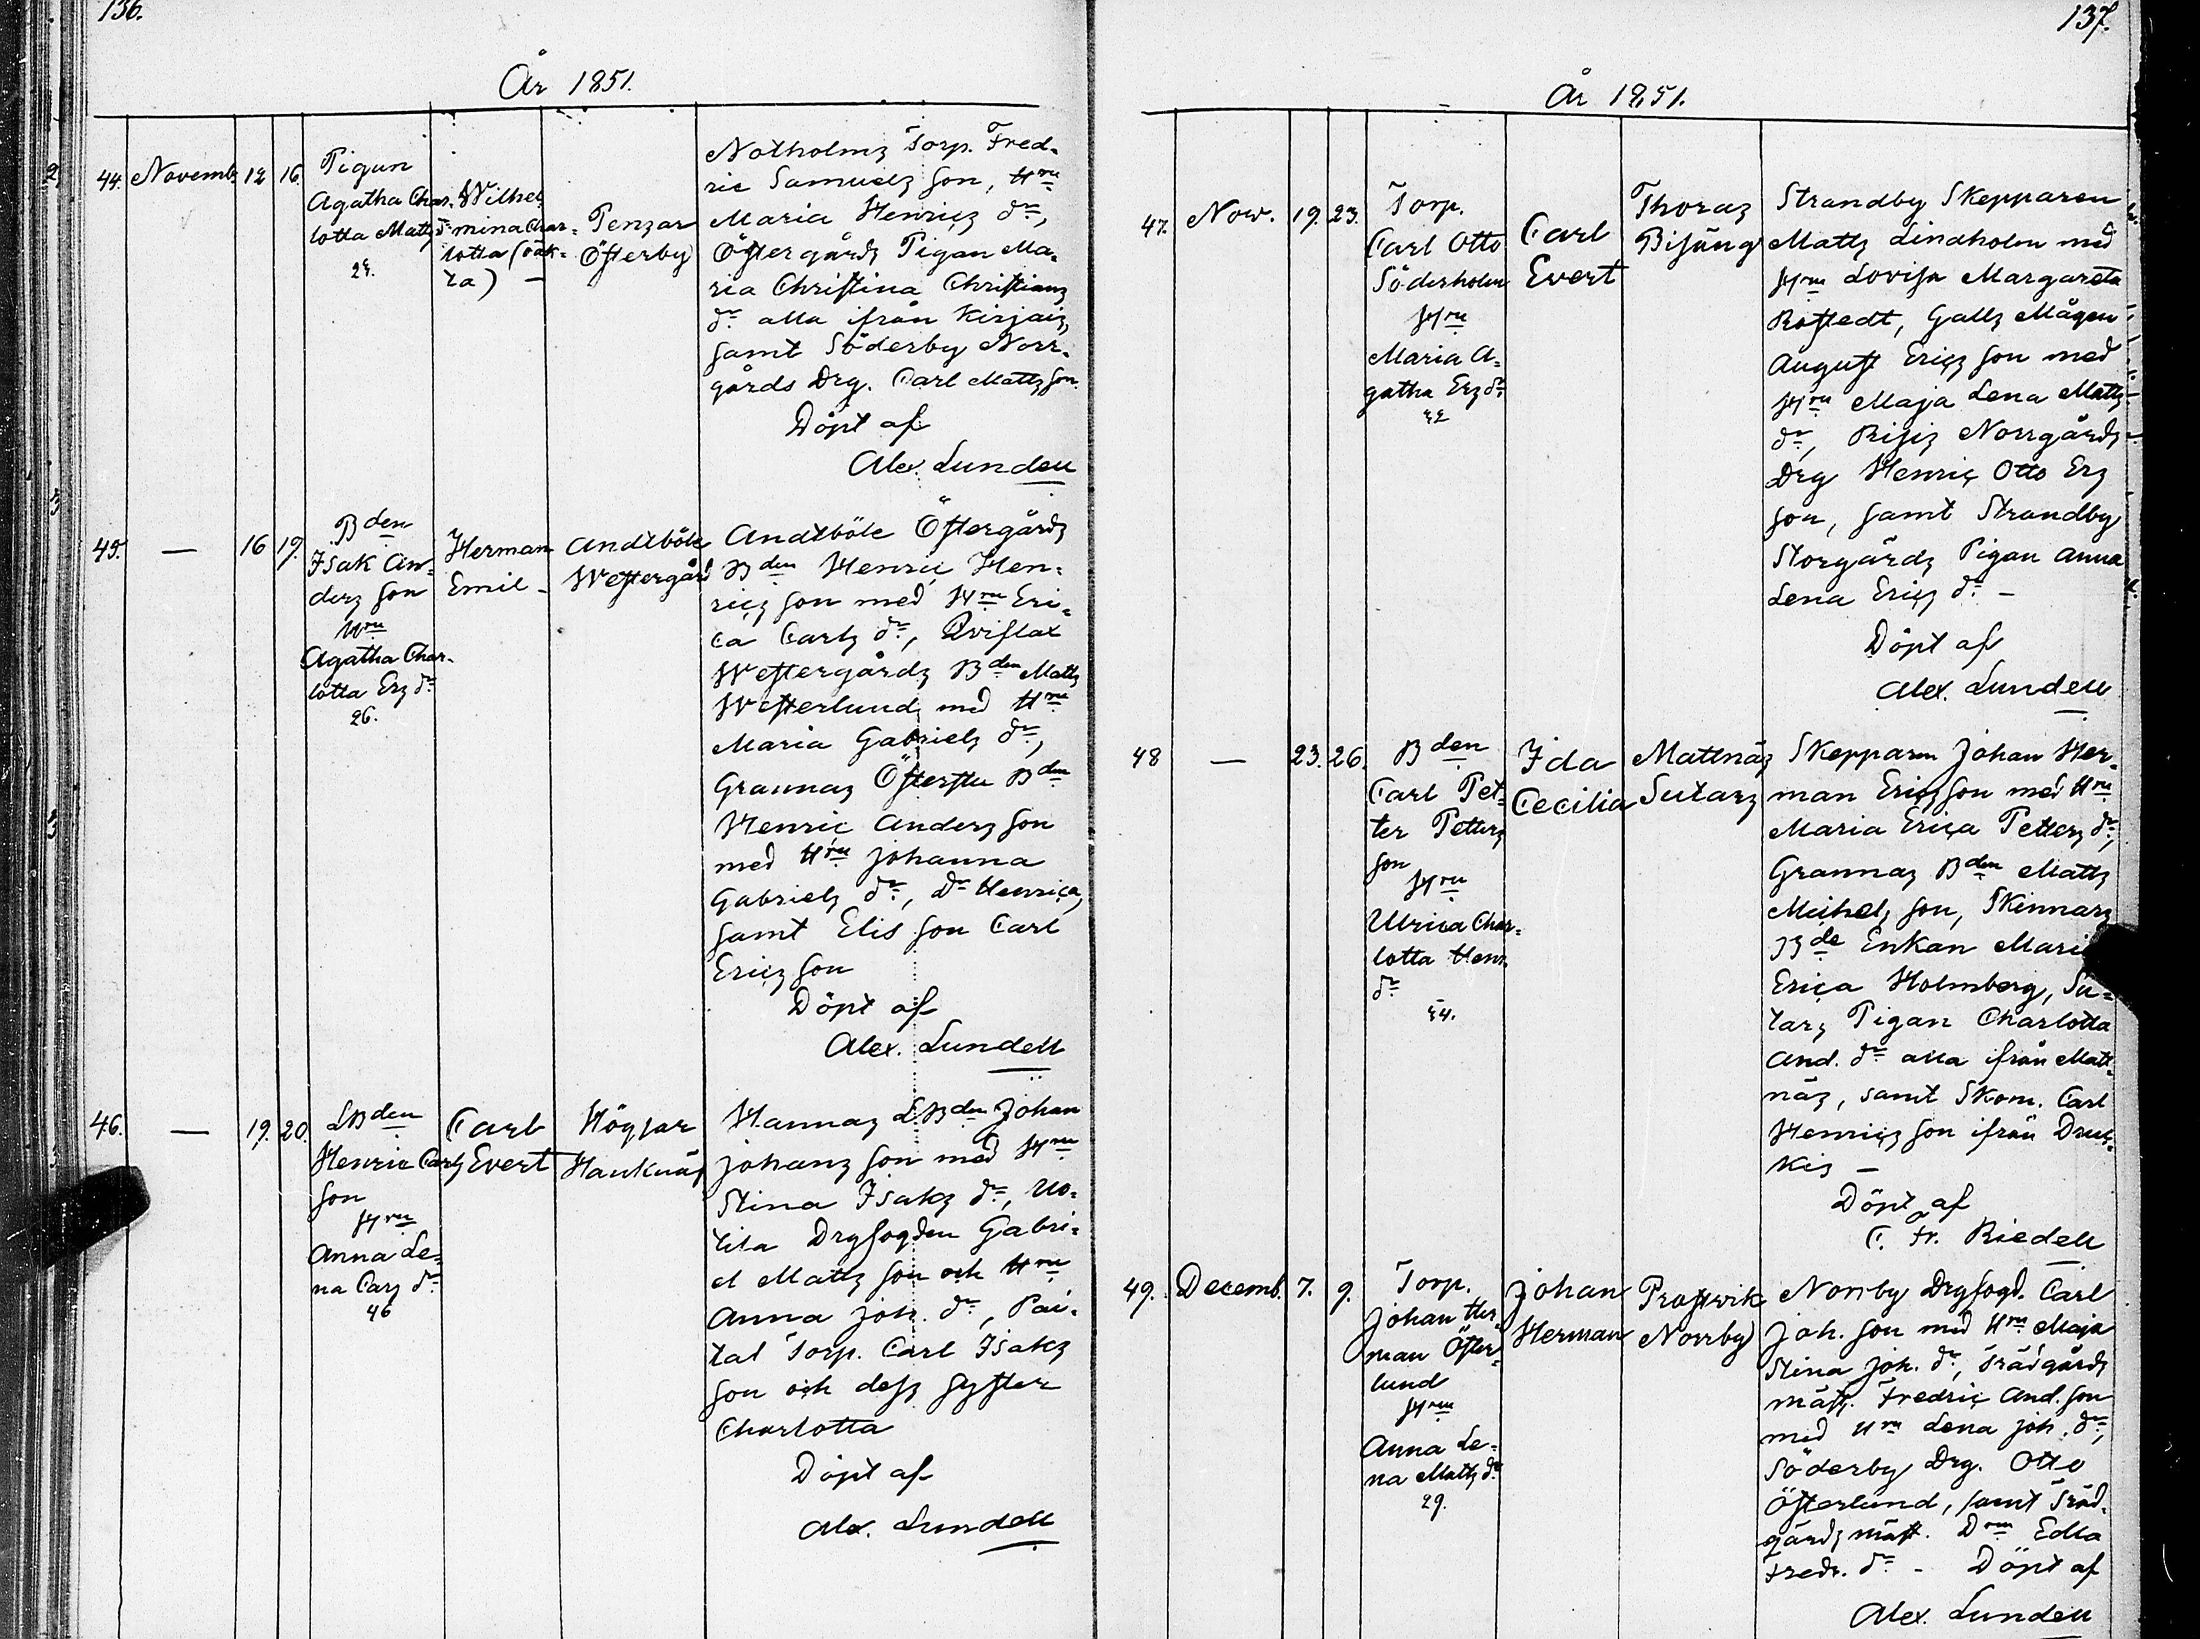 136.
År 1851.
44. Novemb. 12 16.
Pigan
Agatha Char-
lotta Matts dr
Wilhel-
mina Char-
lotta (oäk-
ta) —
Penzar
Österby
Notholms Torp. Fred-
ric Samuels son, Hru
Maria Henrics dr,
Östergårds Pigan Ma-
ria Christina Christians
dr alla ifrån Kirjais,
samt Söderby Norr-
gårds Drg. Carl Mattsson.
Döpt af
Alex. Lundell
45. — 16 19.
Bden
Isak An-
ders son
Hru
Agatha Char-
lotta Ers dr
26.
Herman
Emil -
Andtböle
Westergård
Andtböle Östergårds
Bden Henric Hen-
rics son med Hru Eri-
ca Carls dr, Qviflax
Westergårds Bden Matts
Westerlund med Hru
Maria Gabriels dr,
Grannas Österstu Bden
Henric Anders son
med Hru Johanna
Gabriels dr, Dr Henrica,
samt Elis son Carl
Erics son
Döpt af
Alex. Lundell
46. — 19. 20.
LBden
Henric Carls
son
Hru
Anna Le-
na Cars dr
46
Carl
Evert
Högsar
Hauknäs
Hannas LBden Johan
Johans son med Hru
Stina Isaks dr, Uo-
tila Drgfogden Gabri-
el Matts son och Hru
Anna Joh. dr, Pai-
tal Torp. Carl Isaks
son och dess syster
Charlotta
Döpt af
Alex. Lundell
137.
År 1851.
47. Nov. 19. 23.
Torp.
Carl Otto
Söderholm
Hru
Maria A-
gatha Ers dr
Carl
Evert
Thoras
Bisäng
Strandby Skepparen
Matts Lindholm med
Hru Lovisa Margareta
Rostedt, Galts Mågen
August Erics son med
Hru Maja Lena Matts
dr, Risis Norrgårds
Drg Henric Otto Ers
son, samt Strandby
Storgårds Pigan Anna
Lena Erics dr -
Döpt af
Alex. Lundell
48 — 23. 26.
Bden
Carl Pet-
ter Petters
son
Hru
Ulrica Char-
lotta Henr.
dr
Ida
Cecilia
Mattnäs
Sutars
Skepparen Johan Her-
man Erics son med Hru
Maria Erica Petters dr,
Grannas Bden Matts
Michels son, Skinnars
Bde Enkan Maria
Erica Holmberg, Su-
tars Pigan Charlotta
And. dr alla ifrån Matt-
näs, samt Skom. Carl
Henrics son ifrån Druc-
kis —
Döpt af
C. Fr. Riedell
49. Decemb. 7. 9.
Torp.
Johan Her-
man Öster-
lund
Hru
Anna Le-
na Matts dr
29.
Johan
Herman
Prostvik
Norrby
Norrby Drgfogd. Carl
Joh. son med Hru Maja
Stina Joh. dr, Trädgårds
mäst. Fredric And. son
med Hru Lena Joh. dr,
Söderby Drg. Otto
Österlund, samt Träd-
gårds mäst. Drn Edla
Fredr. dr - Döpt af
Alex. Lundell